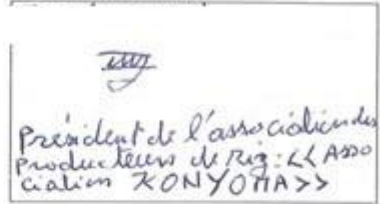 Président de l'association des
Producteurs de Riz : << Asso
ciation KONYOMA >>